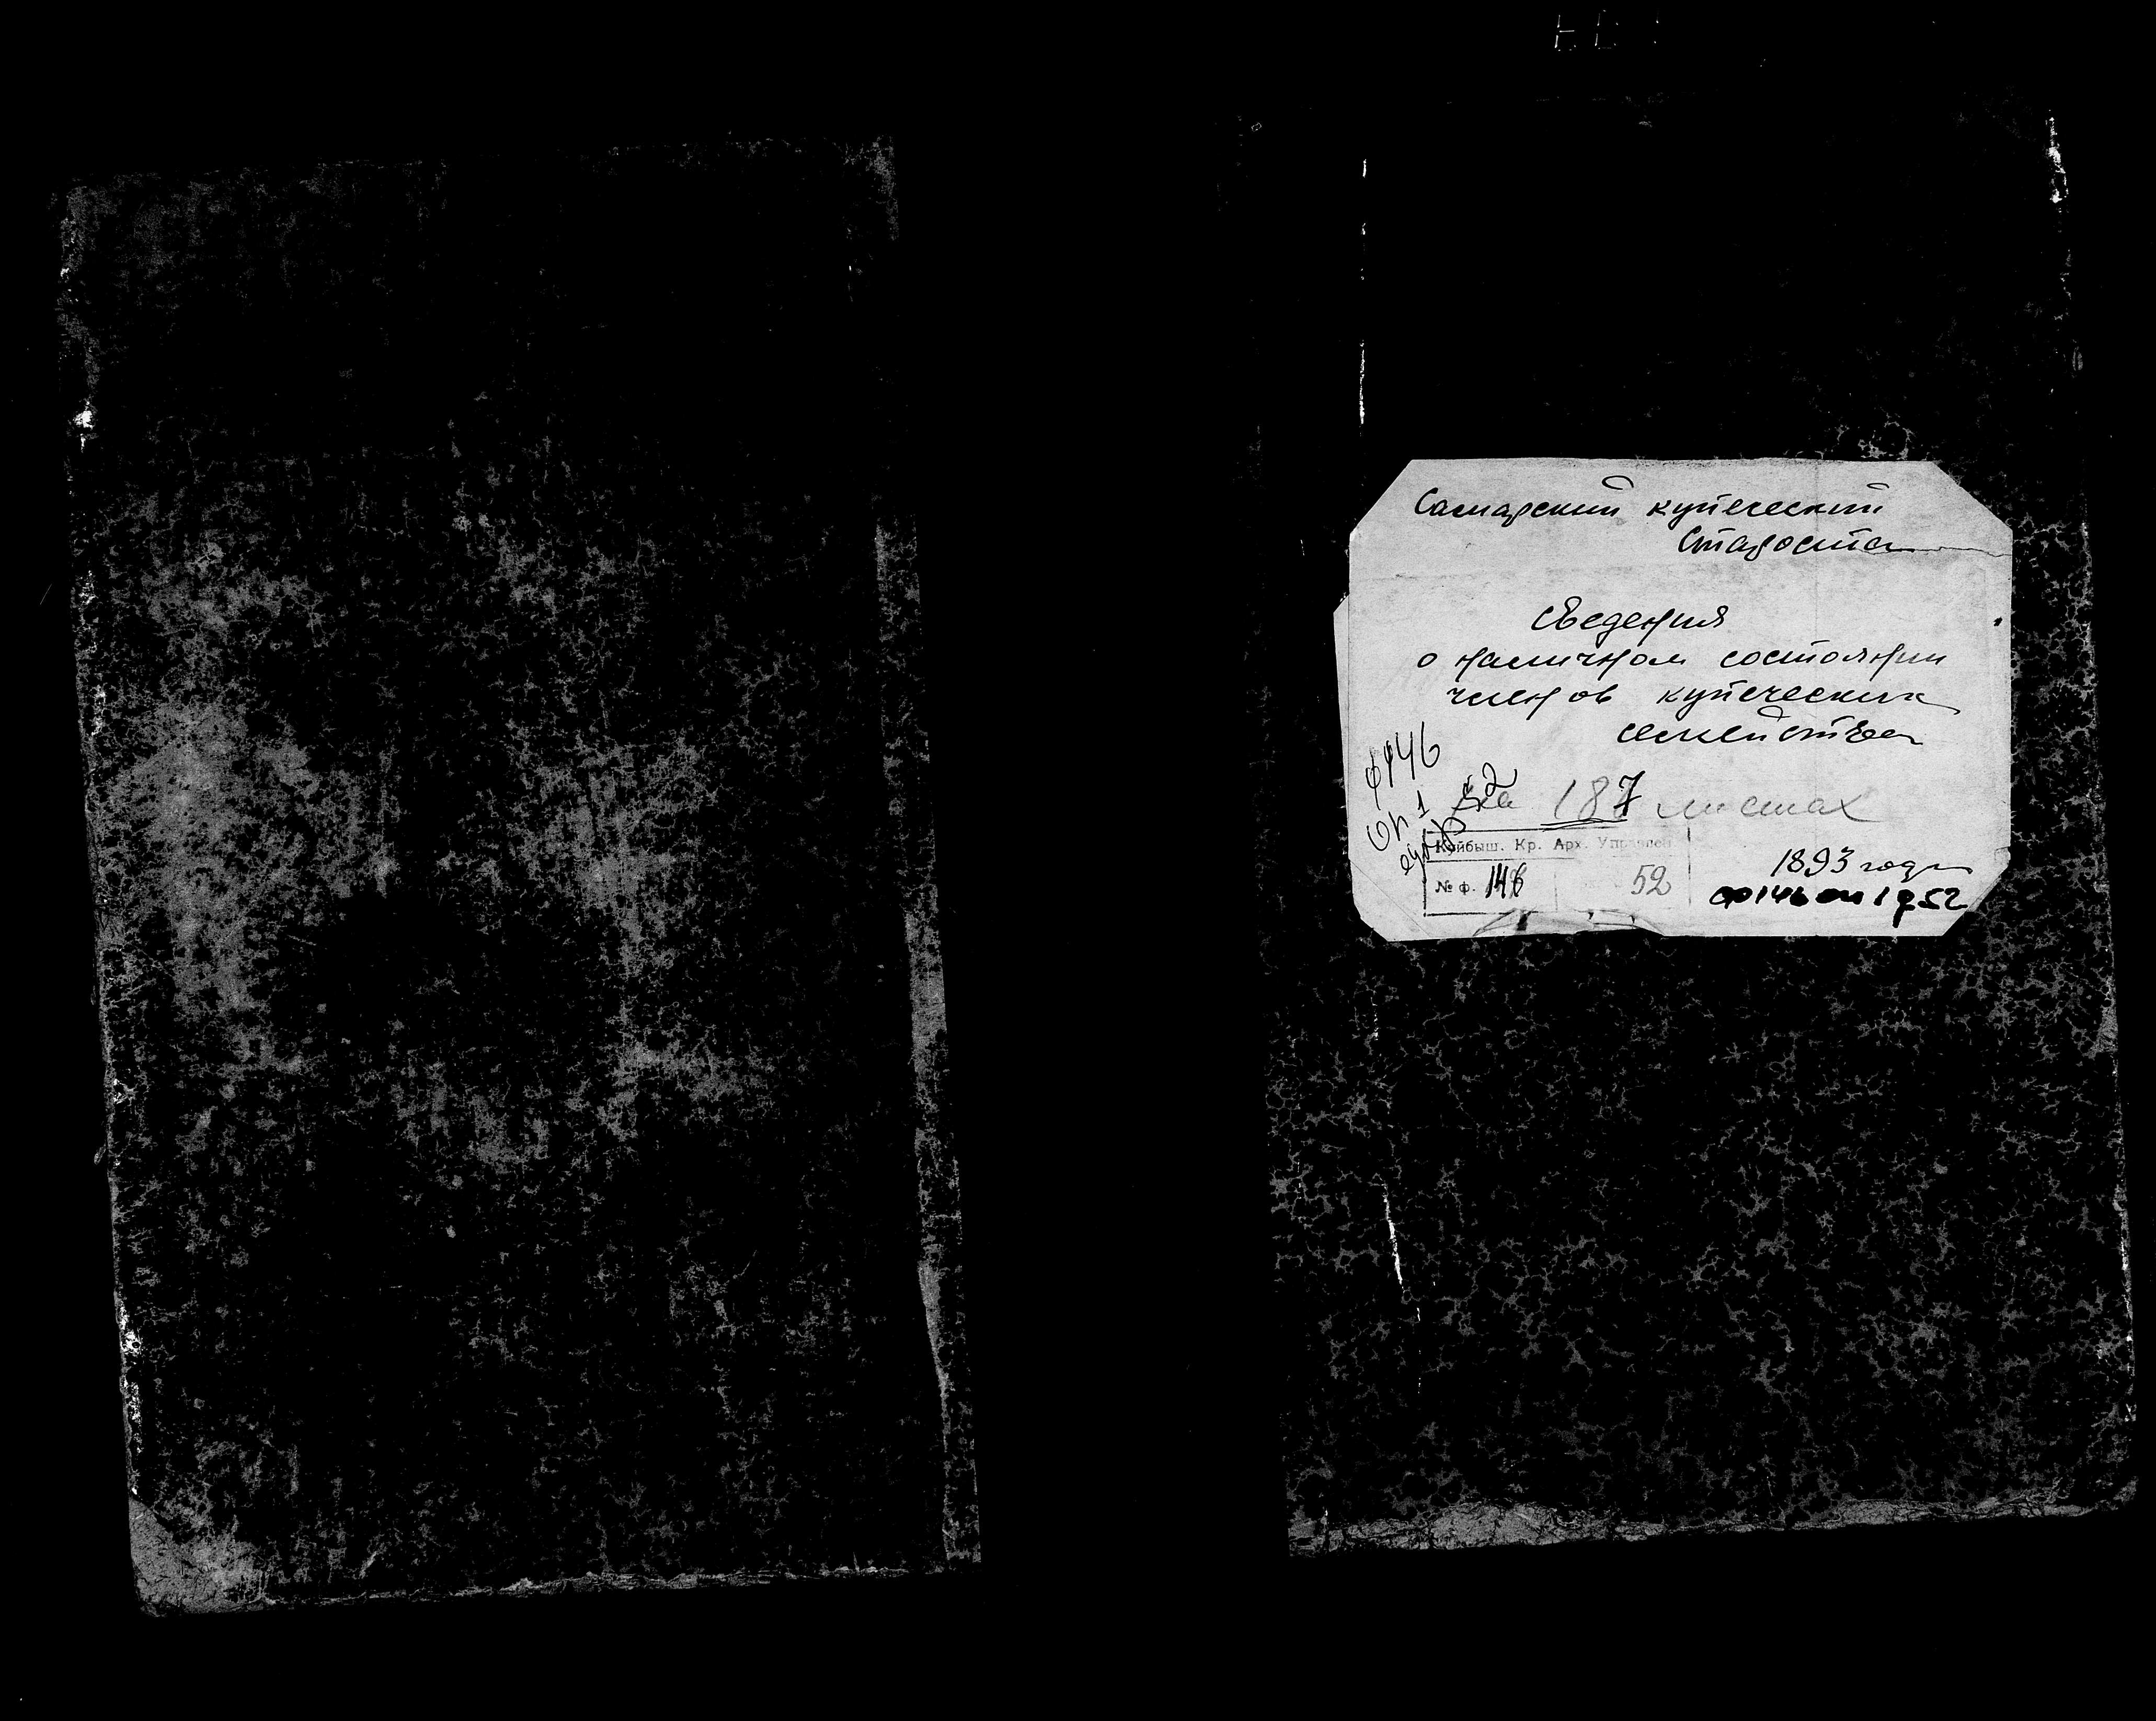 Самарский купеческий
Староста
Сведения
о наличном состоянии
членов купеческих
семейства
ф 146
оп 1
на 187 листах
Куйбыш. Кр. Арх. Управлен
№ ф. 146 52
1893 года
ф 146 оп 1 д 52